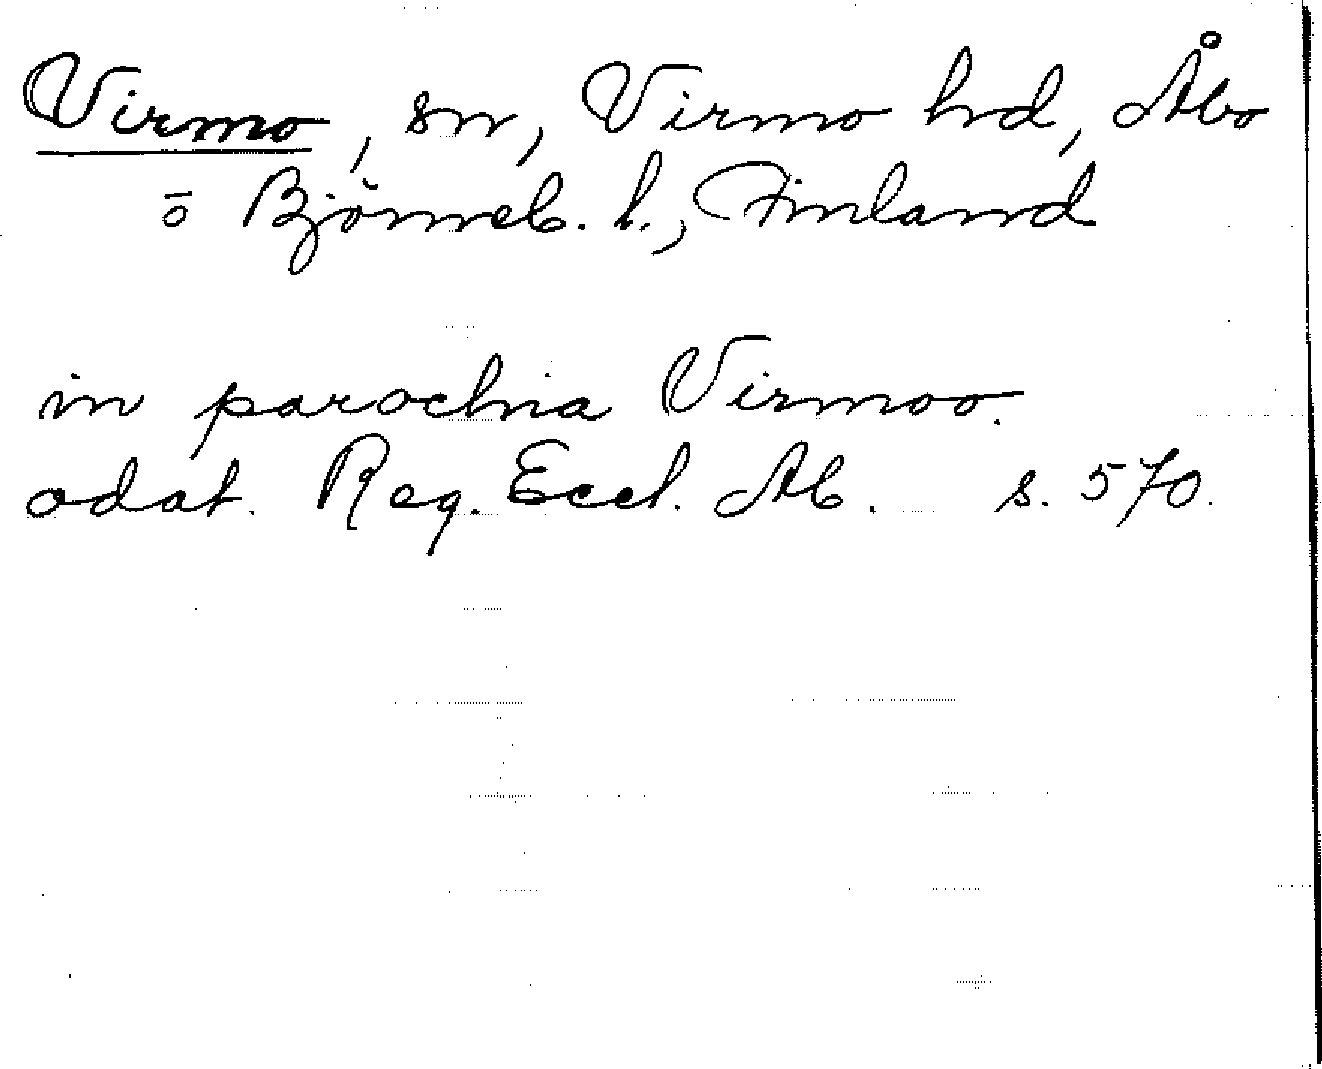 Virmo, sn, Virmo hd, Åbo
o Björneb. l., Finland
in parochia Virmoo.
odat. Reg. Eccl. Ab. s. 570.